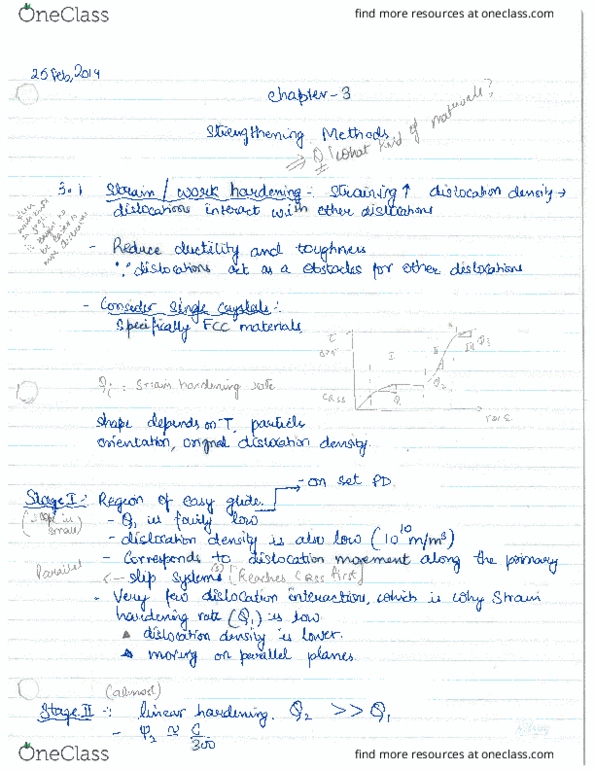 OneClass
find more resources at oneclass.com
25 Feb, 2014
Chapter - 3
Strengthening Methods
⇒ Q! What kind of materials?
3.1 Strain / work hardening:- Straining ↑ dislocation density →
dislocations interact with other dislocations
- Reduce ductility and toughness
∵ dislocations act as a obstacles for other dislocations
- Consider Single Crystals:-
Specifically FCC materials
τ
CRSS
I
II
III
: Strain hardening rate
shape depends on T, particle
orientation, original dislocation density.
Stage I:- Region of easy glide.
→ on set PD.
(slope is small)
- Q1 is fairly low
- dislocation density is also low (10^10 m/m³)
- Corresponds to dislocation movement along the primary
Parallel
<-- slip systems [Reaches CRSS first]
- Very few dislocation interaction, which is why Strain
hardening rate (Q1) is low
▲ dislocation density is lower.
▲ moving on parallel planes.
(almost)
Stage II :- linear hardening. Q2 >> Q1
- φ2 ≃ G/300
OneClass
find more resources at oneclass.com